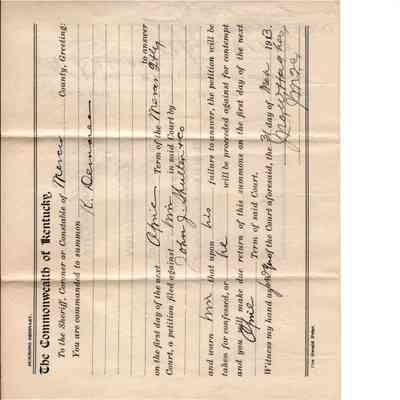 SUMMONS ORDINARY.
The Commonwealth of Kentucky,
To the Sheriff, Corner or Constable of Mercer County, Greeting:
You are commanded to summon
R. Demaree
to answer
on the first day of the next April Term of the Mercer Qtly
Court, a petition filed against him in said Court by
John J. Shelton &co
and warn him that upon his failure to answer, the petition will be
taken for confessed, or he will be proceeded against for contempt
and you will make due return of this summons on the first day of the next
April Term of said Court.
Witness my hand as of the Court aforesaid, the 31 day of Mch 1913.